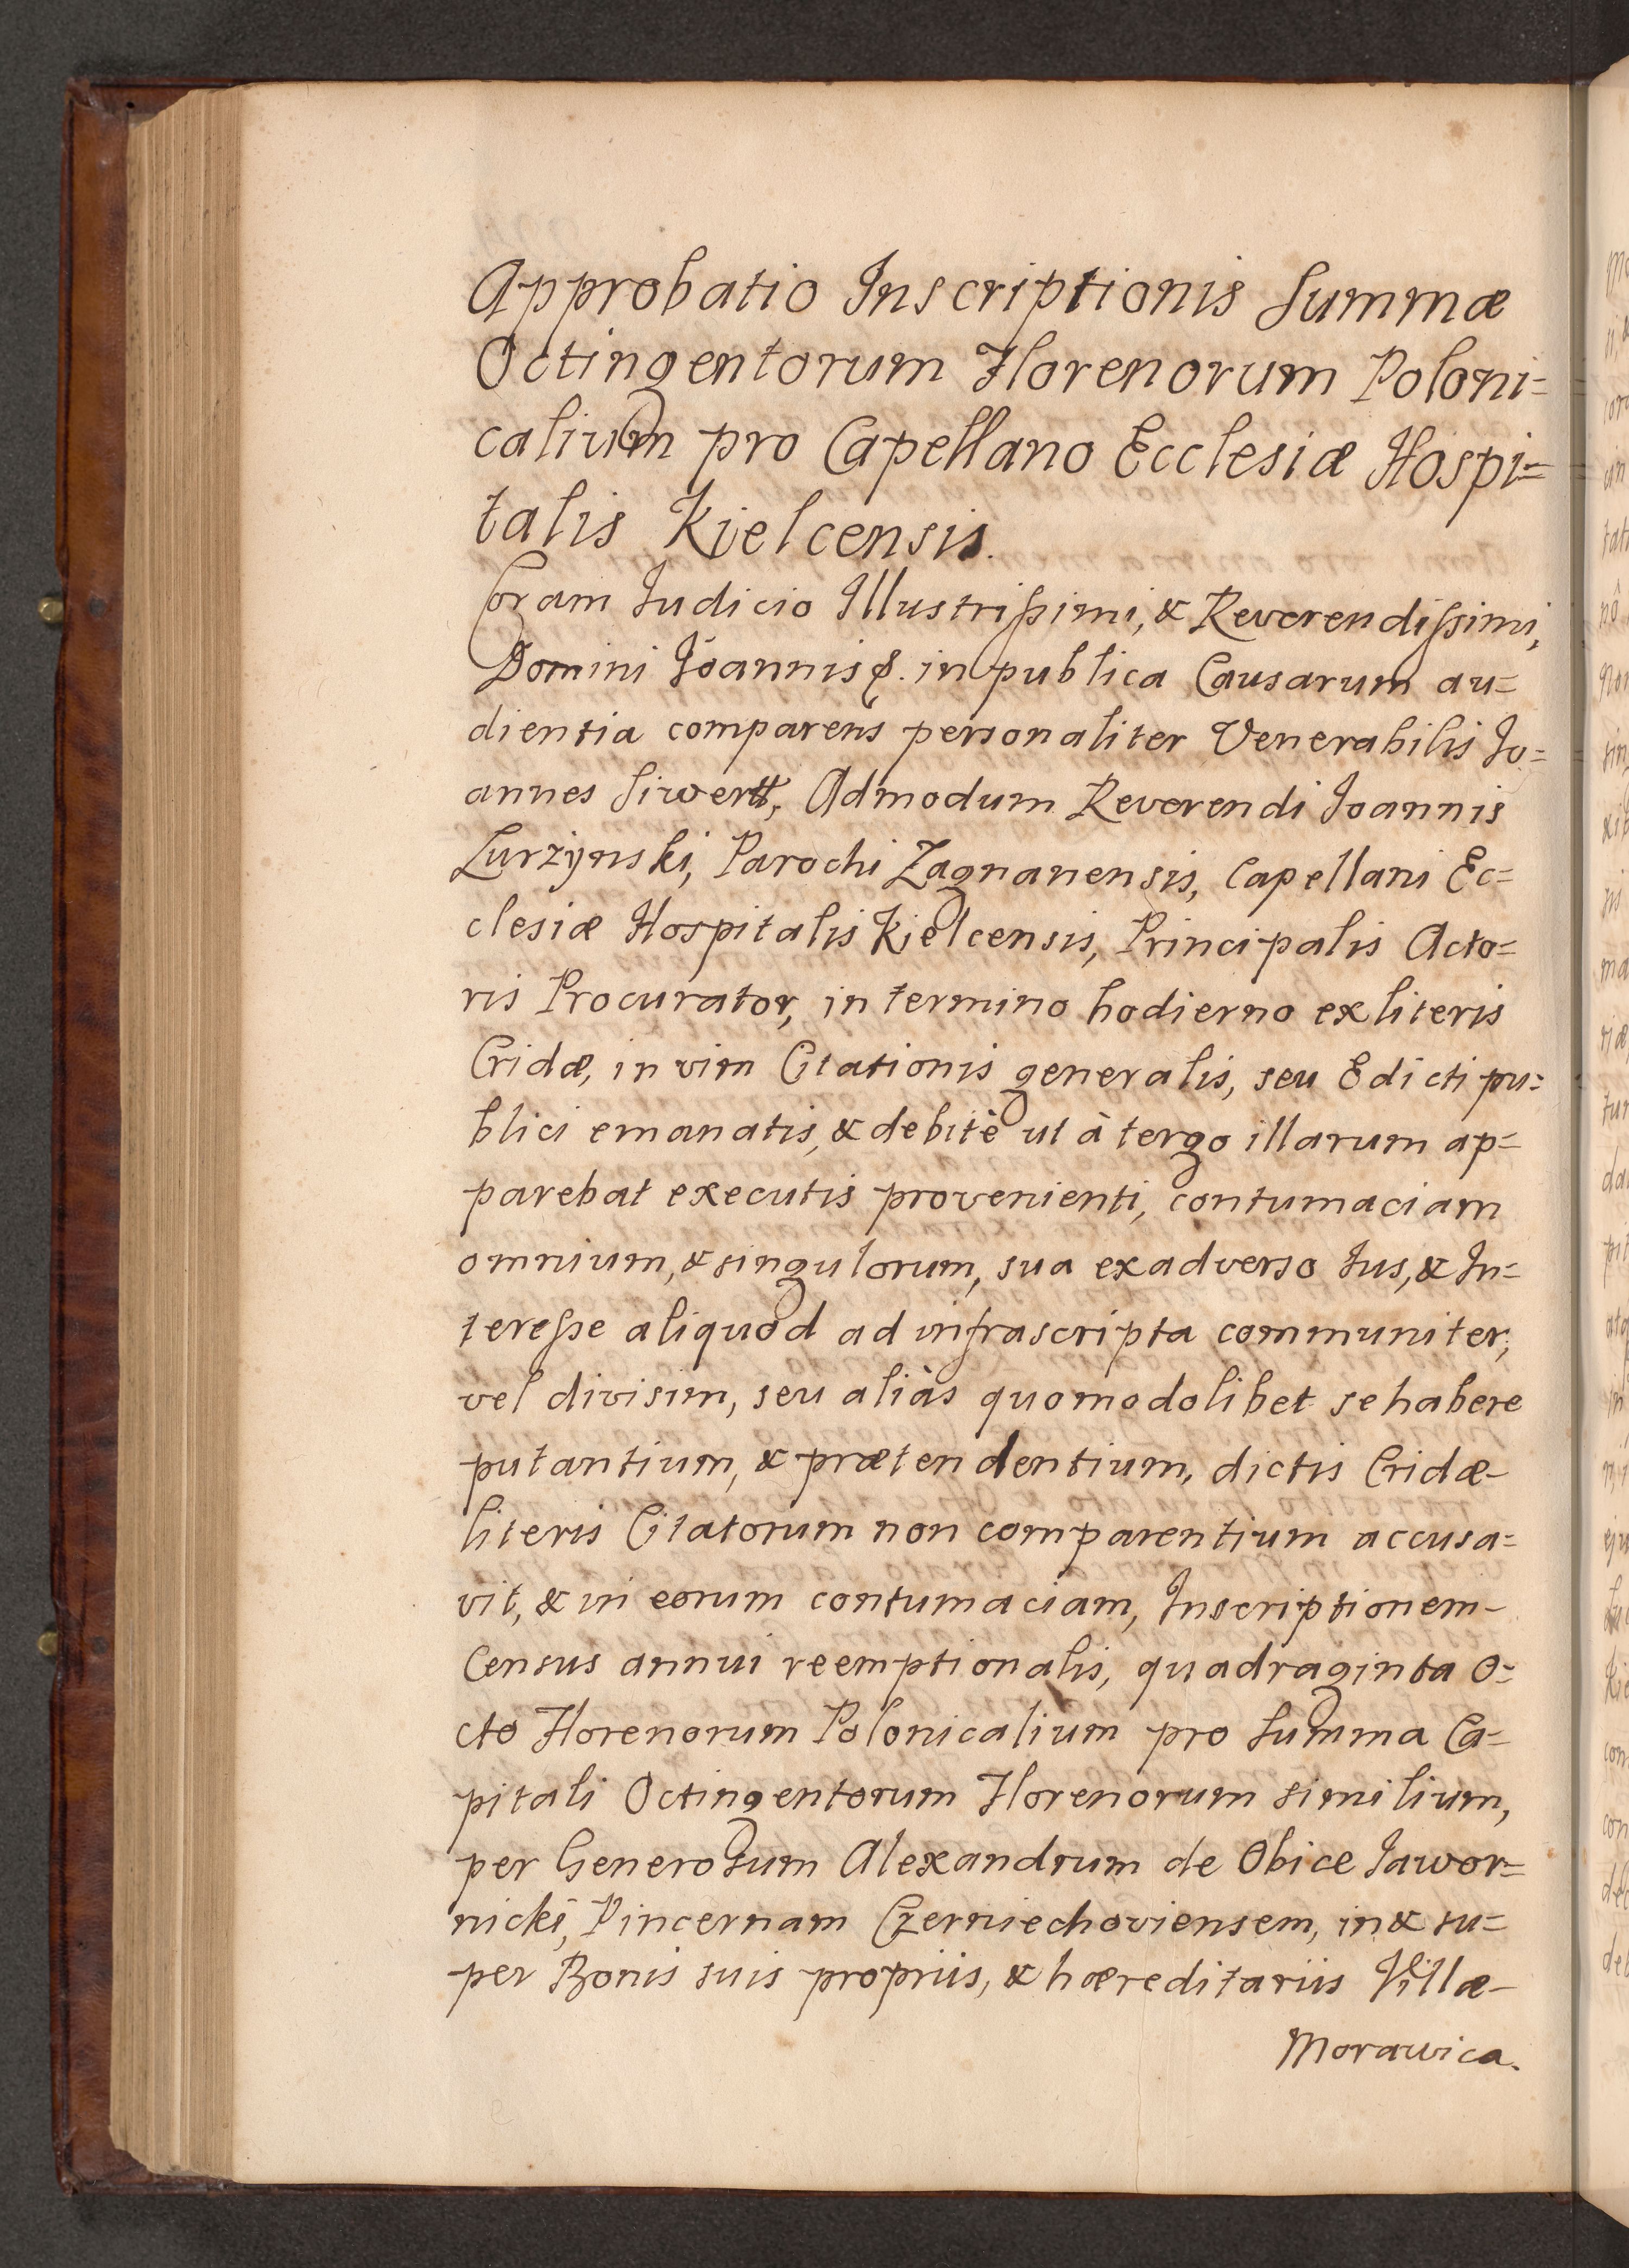 Approbatio Inscriptionis Summæ
Octingentorum Florenorum Poloni=
calium pro Capellano Ecclesiæ Hospi=
talis Kielcensis.
Coram Iudicio Illustrissimi, & Reverendissimi,
Domini Ioannis &. in publica Causarum au=
dientia comparens personaliter Venerabilis Io=
annes Siwertt, Admodum Reverendi Ioannis
Lurżynski, Parochi Zagnanensis, Capellani Ec=
clesiæ Hospitalis Kielcensis, Principalis Acto=
ris Procurator, in termino hodierno ex literis
Cridæ, in vim Citationis generalis, seu Edicti pu=
blici emanatis, & debitè ut à tergo illarum ap=
parebat executis provenienti, contumaciam
omnium, & singulorum, sua ex adverso Ius, & In=
teresse aliquod ad infrascripta communiter,
vel divisim, seu aliàs quomodolibet se habere
putantium, & prætendentium, dictis Cridæ-
literis Citatorum non comparentium accusa=
vit, & in eorum contumaciam, Inscriptionem-
Census annui reemptionalis, quadraginta o=
cto Florenorum Polonicalium pro Summa Ca=
pitali Octingentorum Florenorum similium,
per Generosum Alexandrum de Obice Iawor=
nicki, Pincernam Czerniechoviensem, in & su=
per Bonis suis propriis, & hæreditariis Villæ-
Morawica.